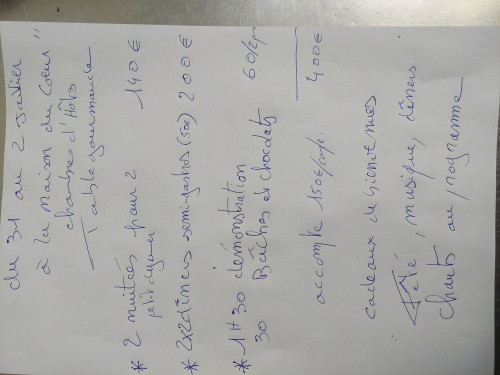 du 31 au 2 Janvier
à la maison du Coeur"
chambres d'Hôtes
Table gourmande
* 2 nuitées pour 2 140€
petit déjeuner
* 2x2 dîners semi-gastros (50€) 200€
* 1H30 démonstration 60/2p
30 Bûches et chocolats
400€
accompte 150€/cple.
cadeaux de bienvenues
Fêté, musique, dîners
chants au programme